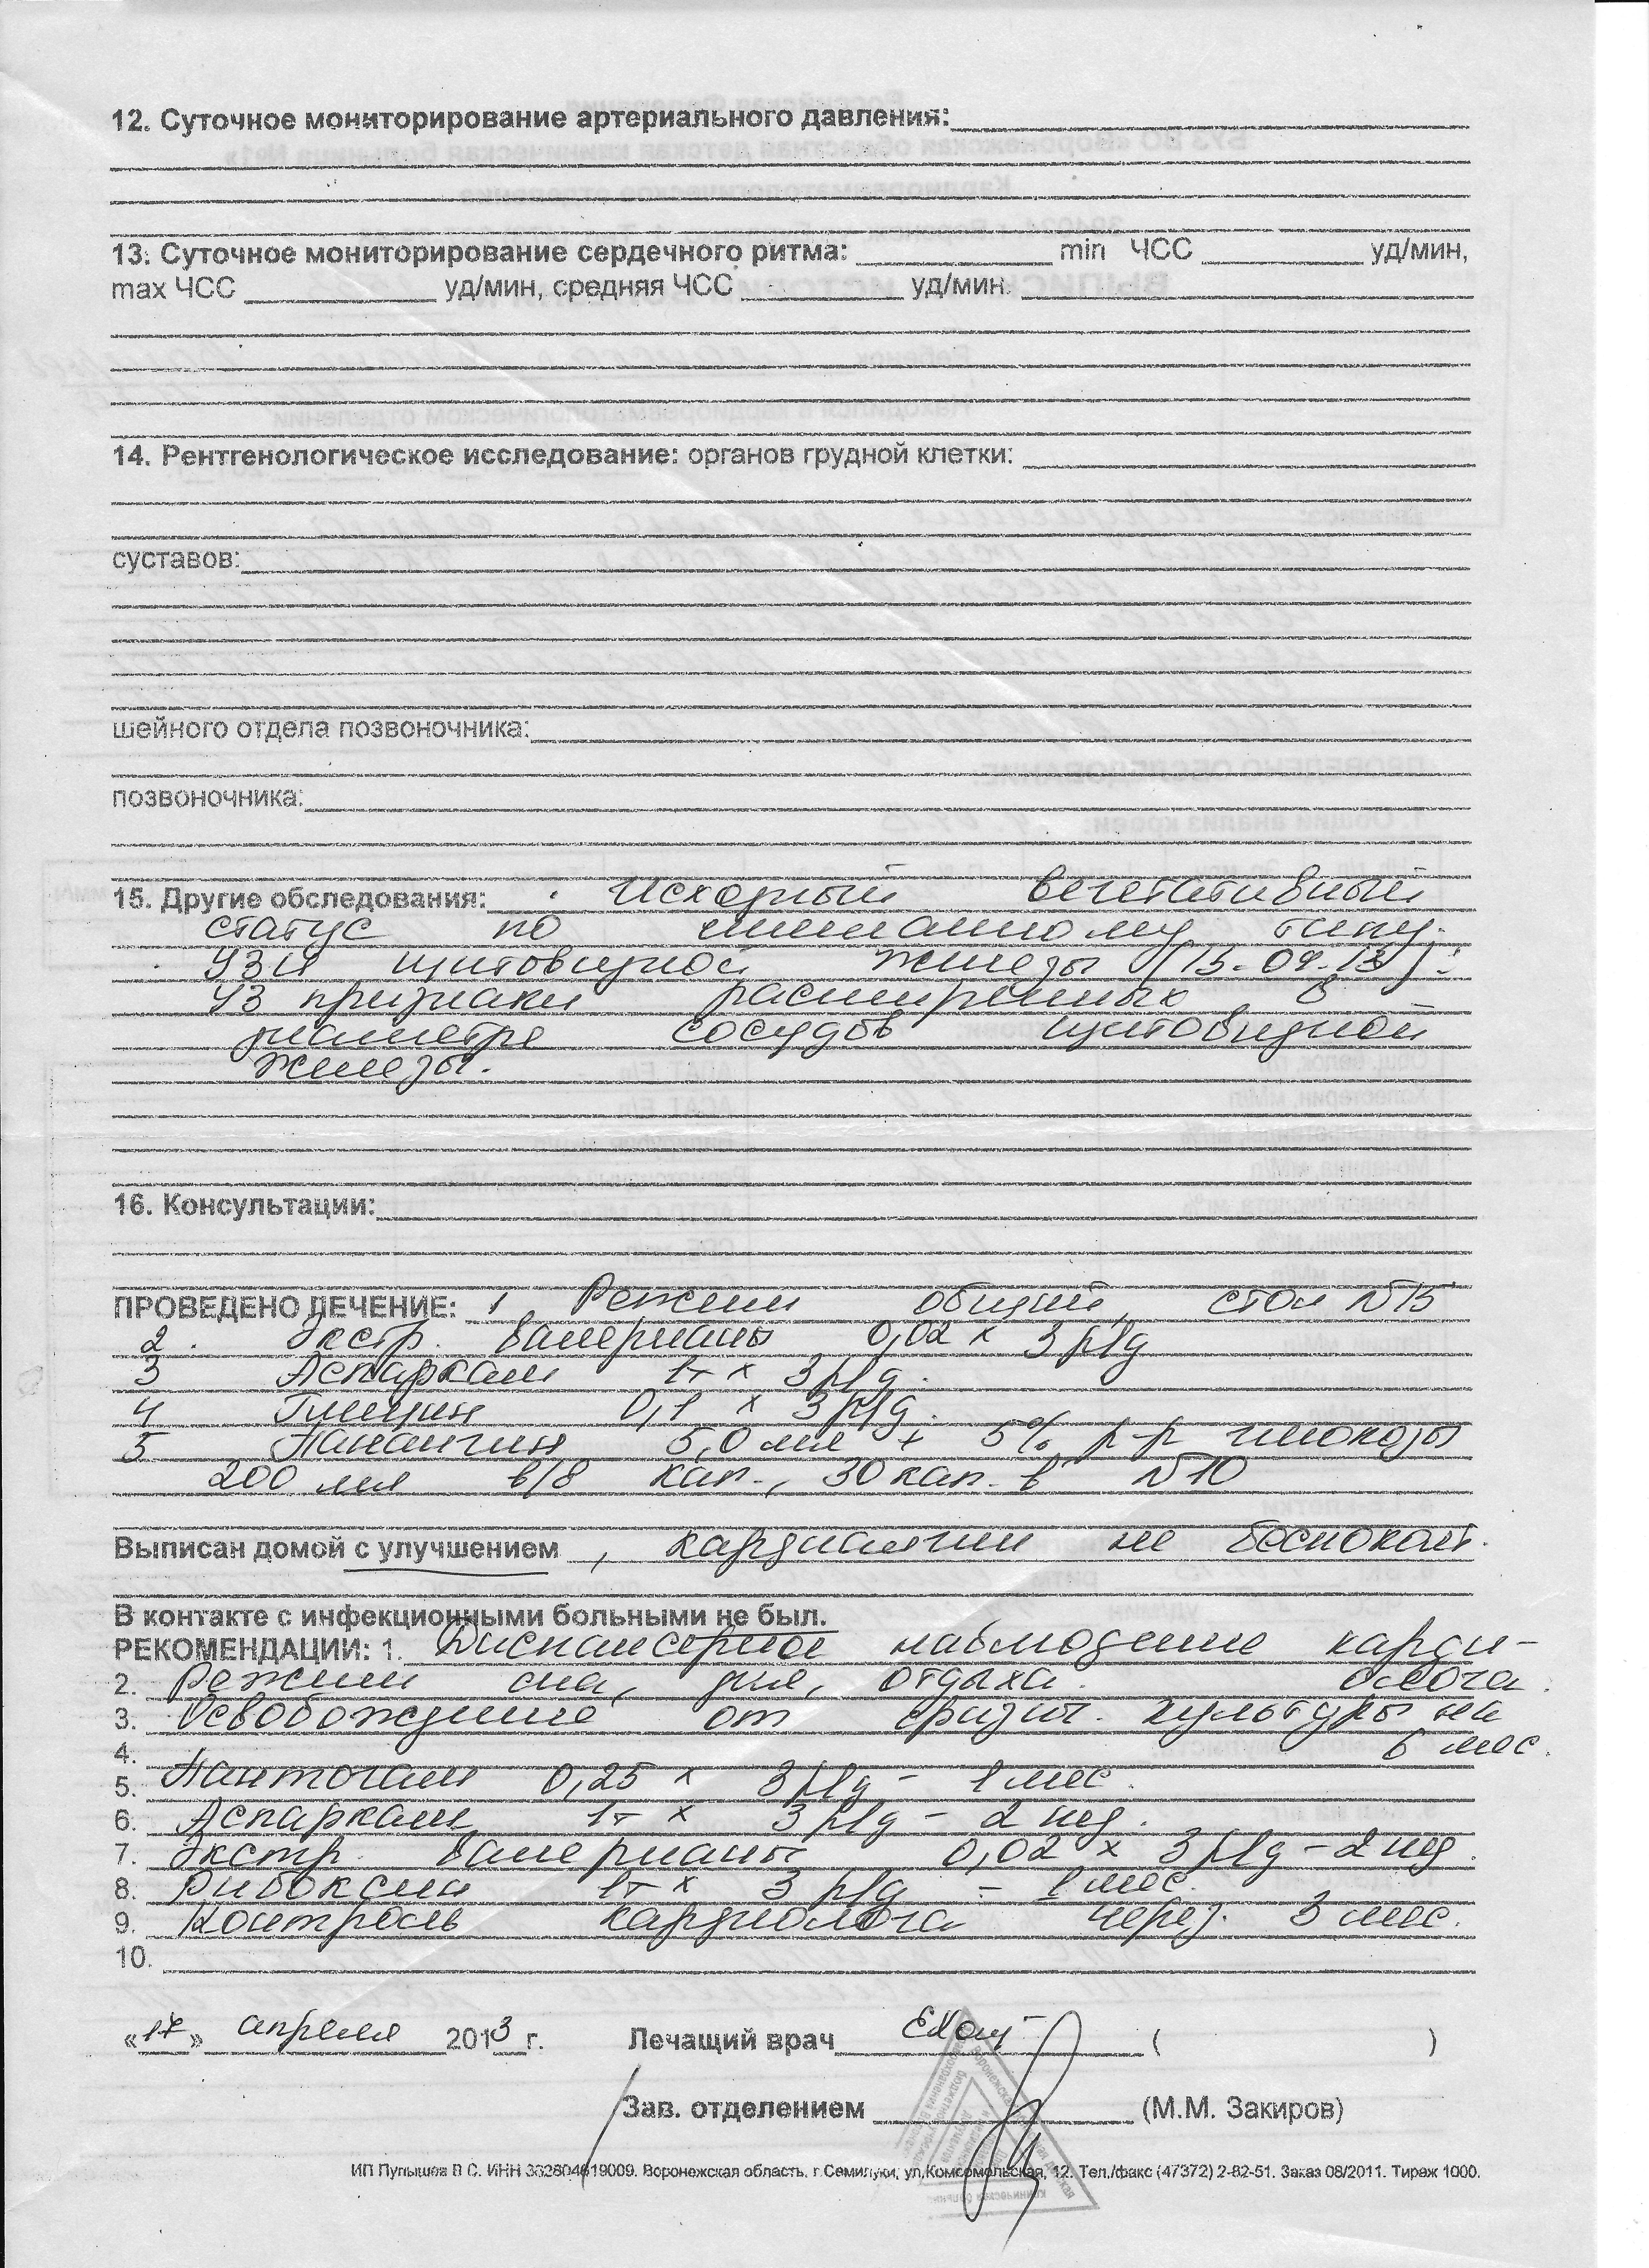 12. Суточное мониторирование артериального давления:
13. Суточное мониторирование сердечного ритма: min ЧСС уд/мин,
max ЧСС уд/мин, средняя ЧСС уд/мин.
14. Рентгенологическое исследование: органов грудной клетки:
суставов:
шейного отдела позвоночника:
позвоночника:
15. Другие обследования: Исходный вегетативный
статус по смешанному типу.
УЗИ щитовидной железы (15.04.13):
УЗ признаки расширенных в
диаметре сосудов щитовидной
железы.
16. Консультации:
ПРОВЕДЕНО ЛЕЧЕНИЕ: 1. Режим общий, стол №15
2. Экстр. валерианы 0,02 х 3 р/д
3 Аспаркам 1т х 3 р/д.
4 Глицин 0,1 х 3 р/д.
5 Панангин 5,0 мл + 5% р-р глюкозы
200 мл в/в кап., 30 кап. в №10
Выписан домой с улучшением, кардиалгии не беспокоят.
В контакте с инфекционными больными не был.
РЕКОМЕНДАЦИИ: 1. Диспансерное наблюдение карди-
олога.
2. Режим сна, дня, отдыха.
3. Освобождение от физич. культуры на
6 мес.
4.
5. Пантогам 0,25 х 3 р/д - 1 мес.
6. Аспаркам 1т х 3 р/д - 2 нед.
7. Экстр. валерианы 0,02 х 3 р/д - 2 нед.
8. Рибоксин 1т х 3 р/д - 1 мес.
9. Контроль кардиолога через 3 мес.
10.
«17» апреля 2013 г. Лечащий врач ( )
Зав. отделением (М.М. Закиров)
ИП Пупышев В С. ИНН 362804619009. Воронежская область, г.Семилуки, ул.Комсомольская, 12. Тел./факс (47372) 2-82-51. Заказ 08/2011. Тираж 1000.